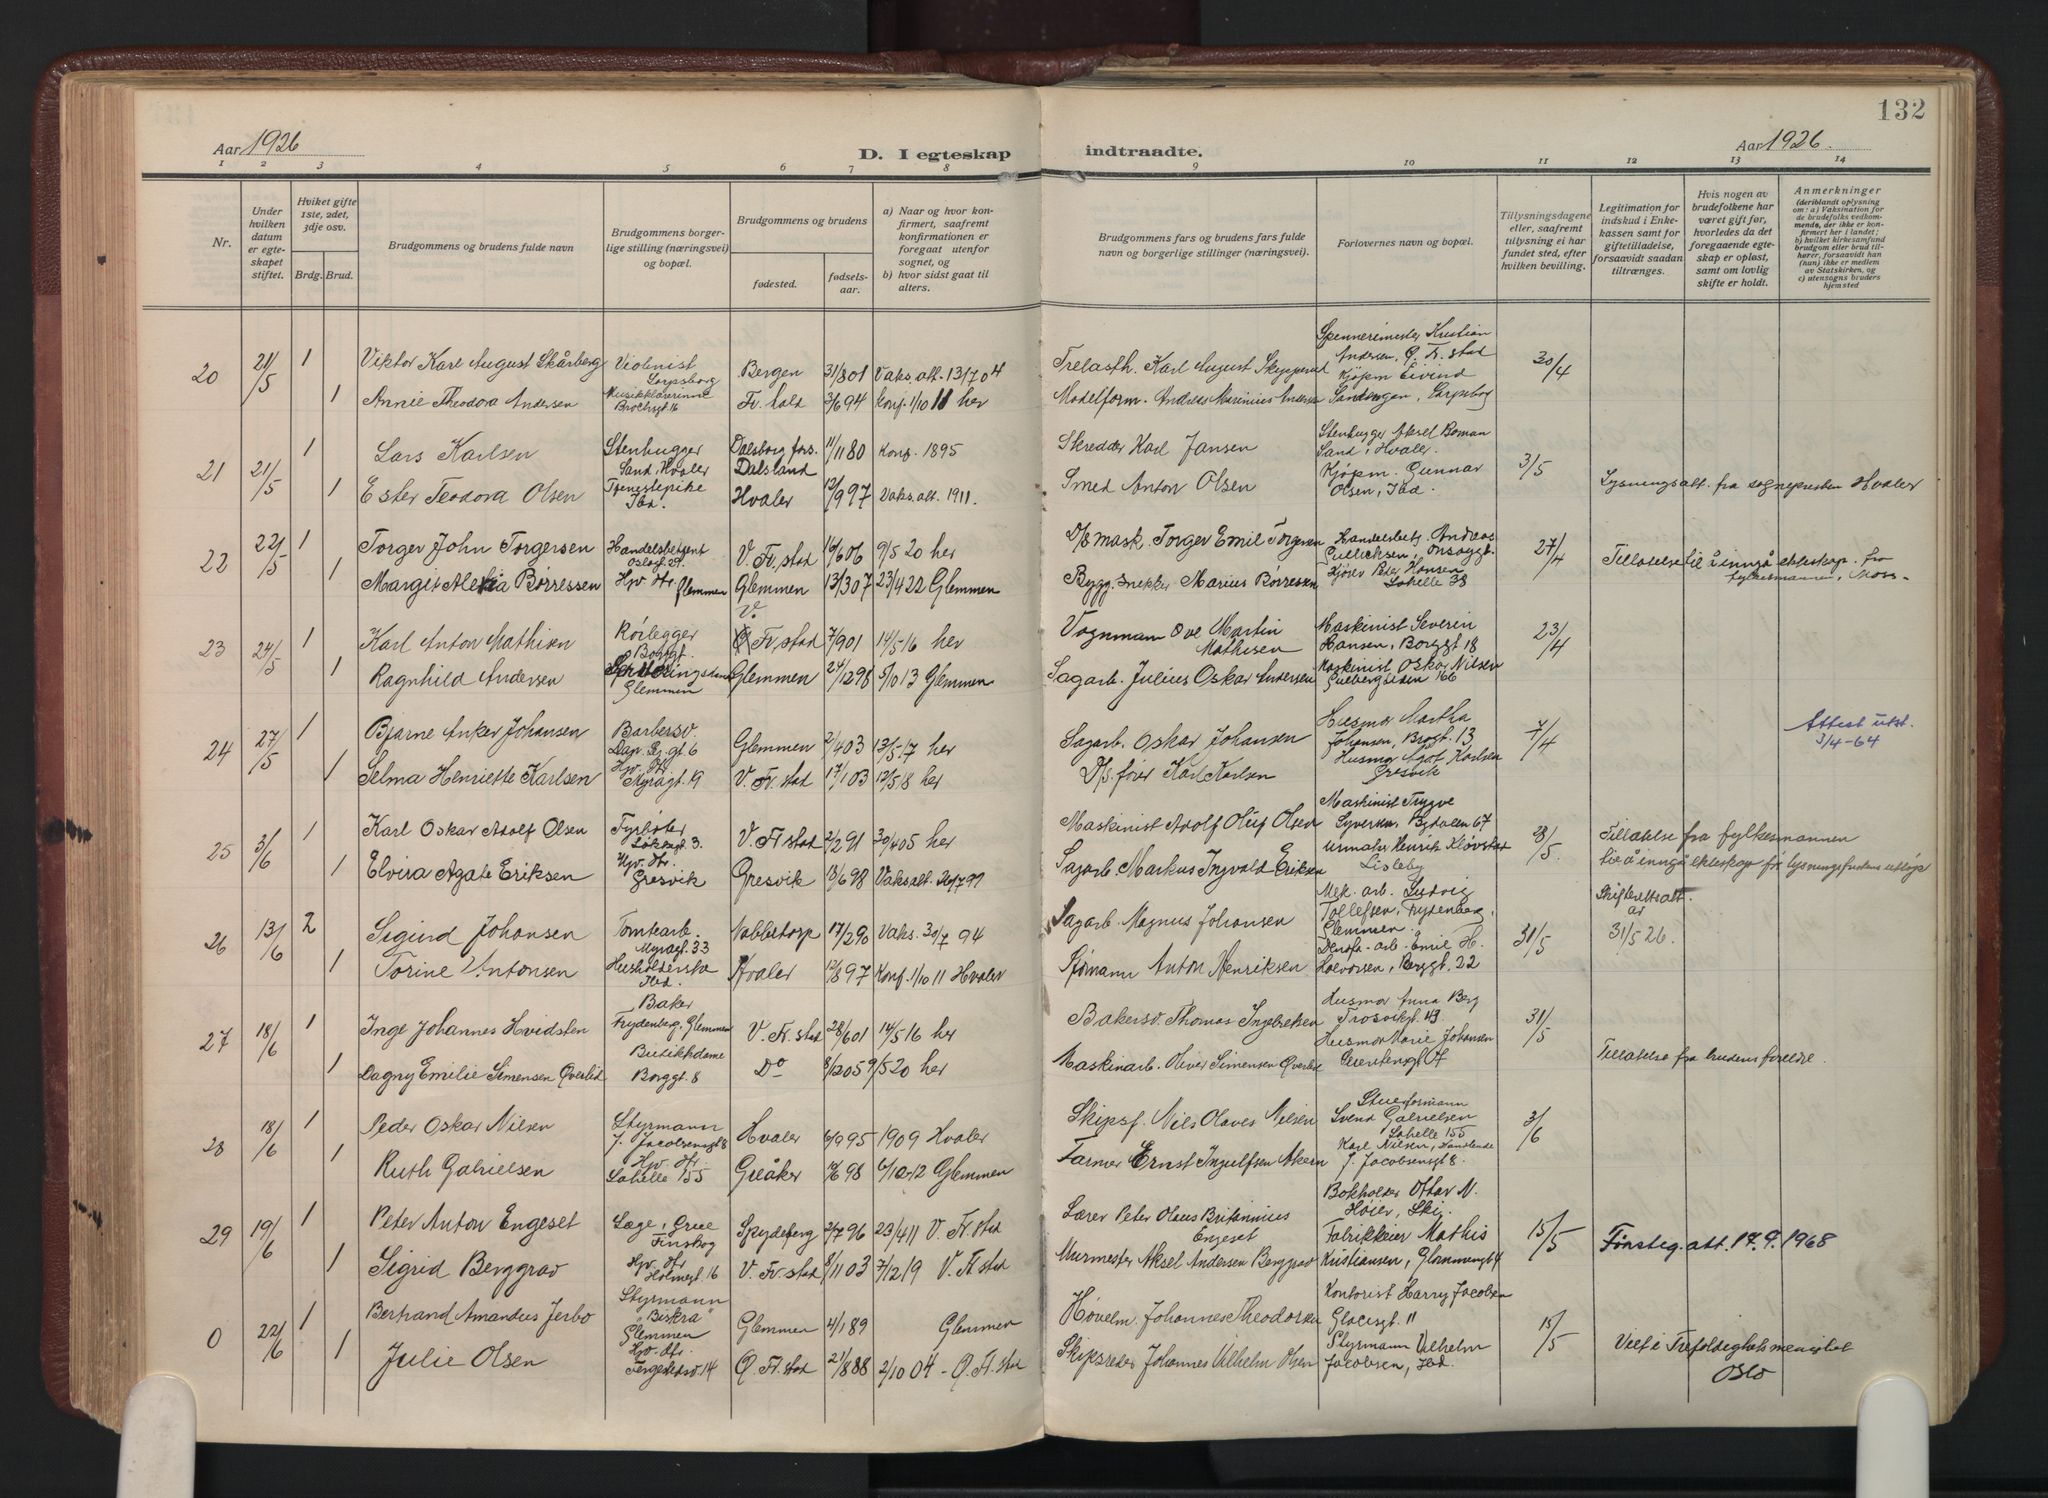 132
Aar 1926
D. I egteskap
indtraadte.
Aar 1926.
1 2 3 4 5 6 7 8 9 10 11 12 13 14
Nr.
Under hvilken datum er egteskapet stiftet.
Hviket gifte 1ste, 2det, 3dje osv.
Brdg. Brud.
Brudgommens og brudens fulde navn
Brudgommens borgerlige stilling (næringsvei) og bopæl.
Brudgommens og brudens
fødested.
fødselsaar.
a) Naar og hvor konfirmert, saafremt konfirmationen er foregaat utenfor sognet, og
b) hvor sidst gaat til alters.
Brudgommens fars og brudens fars fulde navn og borgerlige stillinger (næringsvei).
Forlovernes navn og bopæl.
Tillysningsdagene eller, saafremt tillysning ei har fundet sted, efter hvilken bevilling.
Legitimation for indskud i Enkekassen samt for giftetilladelse, forsaavidt saadan tiltrænges.
Hvis nogen av brudefolkene har været gift før, hvorledes da det foregaaende egteskap er opløst, samt om lovlig skifte er holdt.
Anmerkninger (deriblandt oplysning om: a) Vaksination for de brudefolks vedkommende, der ikke er konfirmert her i landet; b) hvilket kirkesamfund brudgom eller brud tilhører, forsaavidt han (hun) ikke er medlem av Statskirken, og c) utensogns bruders hjemsted
20 21/5 1 Viktor Karl August Skårberg Violinist Sarpsborg Bergen 31/8 01 Vaks.att. 13/7 04 Trelasth. Karl August Spennerimester Kristian Andersen, Ø. Fr.stad 30/4
1 Annie Theodora Andersen Musikklærerinne Brochsgt 16 Fr.hald 3/6 94 Konf. 1/10 11 her Modelform. Andreas Marinius Andersen Kjøpm Eivind Sarpsborg
21 21/5 1 Lars Karlsen Stenhugger Sand, Hvaler Dalsland 11/11 80 Konf. 1895 Skredder Karl Jansen Stenhugger Aksel Boman Sand, Hvaler. 3/5
1 Ester Teodora Olsen Tjenestepike Ibd. Hvaler 12/9 97 Vaks.att. 1911. Smed Anton Olsen Kjøpm. Gunnar Olsen, Ibd. Lysningsatt. fra sognepresten Hvaler
22 22/5 1 Torger John Torgersen Handelsbetjent V. Fr.stad 16/6 06 9/5 20 her D/S mask. Torger Emil Torgersen Handelsbetj. Andreas Gullicksen 27/4 Tillatelse til å inngå ekteskap fra fylkesmannen, Moss
1 Margit Alexia Børressen Hjv. Dtr Glemmen Glemmen 13/3 07 23/4 22 Glemmen Bygg. snekker Marius Børresen Peder Hansen Lahelle 38
23 24/5 1 Karl Anton Mathisen Rørlegger Borggt. V. Fr.stad 7/9 01 14/5-16 her Vognmann Ove Martin Mathisen Maskinist Severin Hansen, Borggt 18 23/4
1 Ragnhild Andersen Glemmen Glemmen 24/12 98 5/10 13 Glemmen Sagarb. Julius Oskar Andersen Maskinist Oskar Nilsen 166
24 27/5 1 Bjarne Anker Johansen Barbersv. Glemmen 2/4 03 13/5-17 her Sagarb. Oskar Johansen Husmor Martha Johansen, Brogt. 13 7/4 Attest utst. 3/4-64
1 Selma Henriette Karlsen Hjv. Dtr Myragt. 19 V. Fr.stad 17/1 03 12/5 18 her D/S fører Karl Karlsen Husmor Agot Karlsen Gresvik
25 3/6 1 Karl Oskar Adolf Olsen Fyrbøter Løkkegt 3. V. Fr.stad 2/2 91 30/4 05 her Maskinist Adolf Oluf Olsen Maskinist Trygve Syversen, Bydalen 67 28/5. Tillatelse fra fylkesmannen
1 Elvira Agate Eriksen Hjv. Dtr. Gresvik Gresvik 13/6 98 Vaksatt. 20/7 99 Sagarb. Markus Ingvald Eriksen Urmaker Henrik Kløvstad Lisleby til å inngå ekteskap før lysningsfristens utløp
26 13/6 2 Sigurd Johansen Tomtearb. Myragt. 33 Nabbetorp 17/2 90 Vaks. 30/7 94 Sagarb. Magnus Johansen Mek. arb. Ludvig Tollefsen, Frydenberg, Glemmen. 31/5 Skifterettsatt. av 31/5 26.
1 Torine Antonsen Husholderske Ibd. Hvaler 12/8 97 Konf. 1/10 11 Hvaler Sjømann Anton Henriksen Denofa-arb. Emil H. Halvorsen, Borggt. 22
27 18/6 1 Inge Johannes Hvidsten Baker Frydenberg, Glemmen V. Fr.stad 28/6 01 14/5 16 her Bakersv. Thomas Ingebretsen Husmor Anna Berg Trosvikgt. 43 31/5
1 Dagny Emilie Simensen Øverlid Butikkdame Borggt. 8 Do 8/12 05 9/5 20 her Maskinarb. Oliver Simensen Øverlid Husmor Marie Johansen Tillatelse fra brudens foreldre.
28 18/6 1 Peder Oskar Nilsen Styrmann J. Jacobsensgt 8 Hvaler 6/9 95 1909 Hvaler Skipsf. Nils Olaves Nilsen Stueformann Svend Gabrielsen Lahelle 155 3/6
1 Ruth Gabrielsen Hjv. Dtr. Lahelle 155 Greåker 98 6/10 12 Glemmen Farmer Ernst Ingulfsen Karl Nilsen, Handlende J. Jacobsensgt 8.
29 19/6 1 Peter Anton Engeset Læge, Grue Finskog Spydeberg 2/7 96 23/4 11 V. Fr.stad Lærer Peter Olaus Britannius Engeset Bokholder Ottar N. Høier, Ski. 15/5 Førsteg. att. 17.9.1968
1 Sigrid Berggrav Hjv. Dtr Holmegt. 16 V. Fr.stad 8/11 03 7/12 19 V. Fr.stad Murmester Aksel Andersen Berggrav Fabrikkeier Mathis Kristiansen, Glommengt
0 22/6 1 Bertrand Amandus Jerbo Styrmann "Biskra" Glemmen Glemmen 4/1 89 Glemmen Høvelm. Johannes Theodorsen Kontorist Harry Jacobsen Glacisgt. 11 15/5 Viet i Trefoldighetsmenighet Oslo
1 Julie Olsen Hjv. dtr. Ø. Fr.stad 21/8 88 2/10 04 - Ø. Fr.stad Skipsreder Johannes Vilhelm Olsen Styrmann Vilhelm Jacobsen, Ibd.